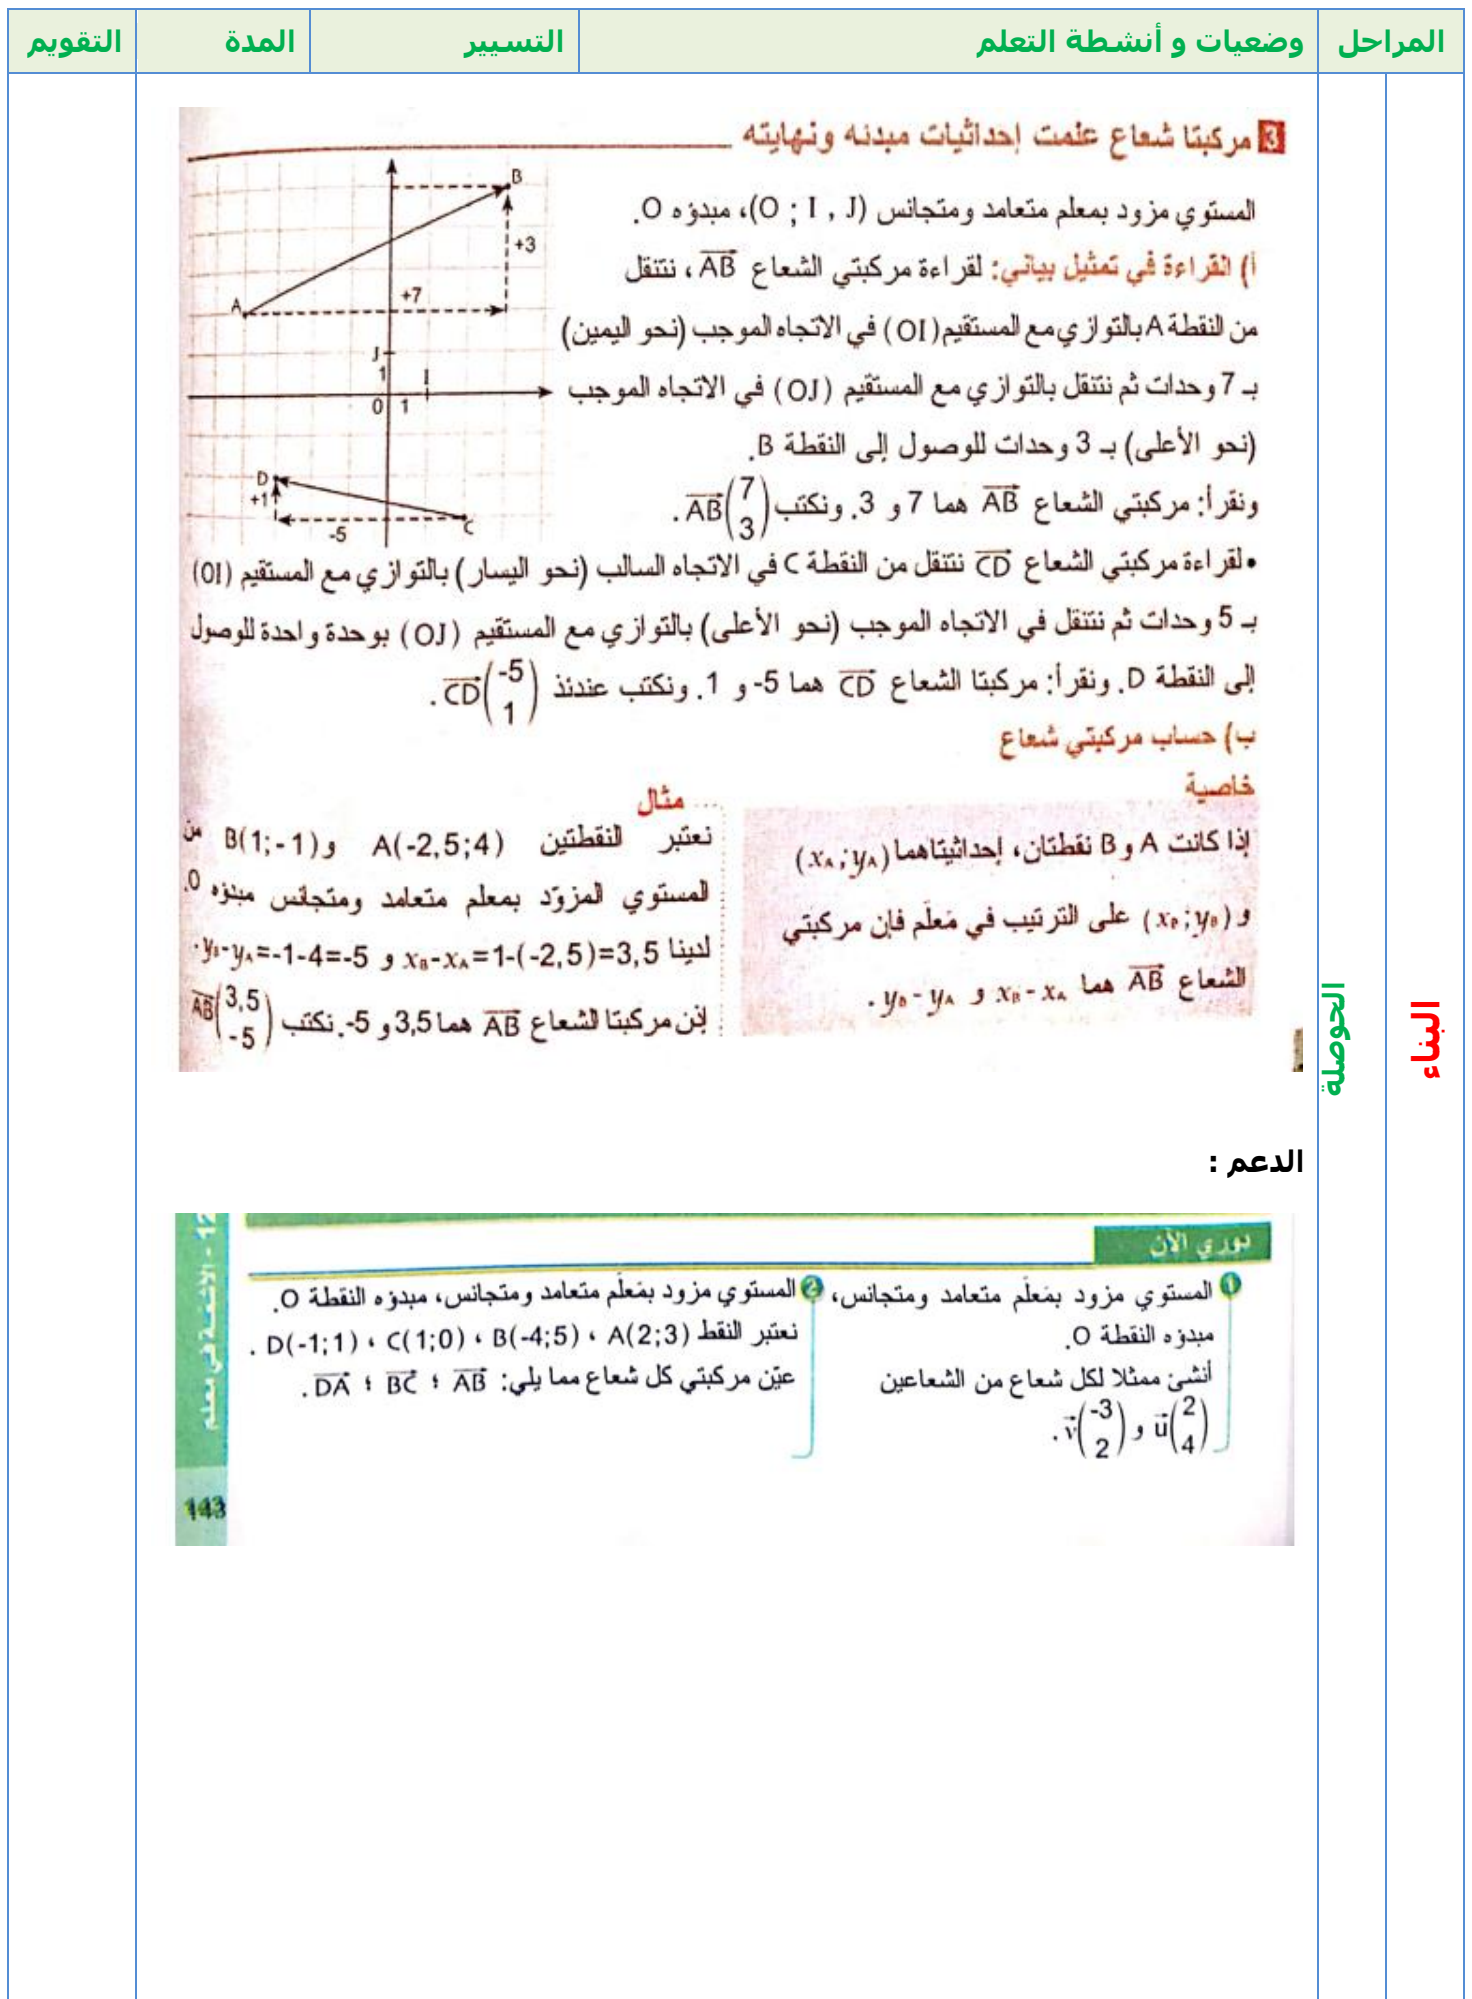 المراحل وضعيات و أنشطة التعلم التسيير المدة التقويم
البناء
الحوصلة
3 مركبتا شعاع علمت إحداثيات مبدئه ونهايته
المستوي مزود بمعلم متعامد ومتجانس (O ; I , J)، مبدؤه O.
أ) القراءة في تمثيل بياني: لقراءة مركبتي الشعاع AB، ننتقل
من النقطة A بالتوازي مع المستقيم (OI) في الاتجاه الموجب (نحو اليمين)
بـ 7 وحدات ثم ننتقل بالتوازي مع المستقيم (OJ) في الاتجاه الموجب
(نحو الأعلى) بـ 3 وحدات للوصول إلى النقطة B.
ونقرأ: مركبتي الشعاع AB هما 7 و 3. ونكتب AB(7 3).
B
+3
A
+7
J
1
I
0 1
D
+1
-5
C
• لقراءة مركبتي الشعاع CD ننتقل من النقطة C في الاتجاه السالب (نحو اليسار) بالتوازي مع المستقيم (OI)
بـ 5 وحدات ثم ننتقل في الاتجاه الموجب (نحو الأعلى) بالتوازي مع المستقيم (OJ) بوحدة واحدة للوصول
إلى النقطة D. ونقرأ: مركبتا الشعاع CD هما 5- و 1. ونكتب عندئذ CD(-5 1).
ب) حساب مركبتي شعاع
خاصية
إذا كانت A و B نقطتان، إحداثيتاهما (xA;yA)
و (xB;yB) على الترتيب في مَعلَم فإن مركبتي
الشعاع AB هما xB-xA و yB-yA.
مثال
نعتبر النقطتين A(-2,5;4) و B(1;-1) من
المستوي المزوّد بمعلم متعامد ومتجانس مبدؤه O.
لدينا xB-xA=1-(-2,5)=3,5 و yB-yA=-1-4=-5.
إذن مركبتا الشعاع AB هما 3,5 و 5-. نكتب AB(3,5 -5)
الدعم :
دوري الآن
1 المستوي مزود بمَعلَم متعامد ومتجانس،
مبدؤه النقطة O.
أنشئ ممثلا لكل شعاع من الشعاعين
u(2 4) و v(-3 2).
2 المستوي مزود بمَعلَم متعامد ومتجانس، مبدؤه النقطة O.
نعتبر النقط A(2;3) ، B(-4;5) ، C(1;0) ، D(-1;1) .
عيّن مركبتي كل شعاع مما يلي: AB ؛ BC ؛ DA .
12 - الأشعة في معلم
143